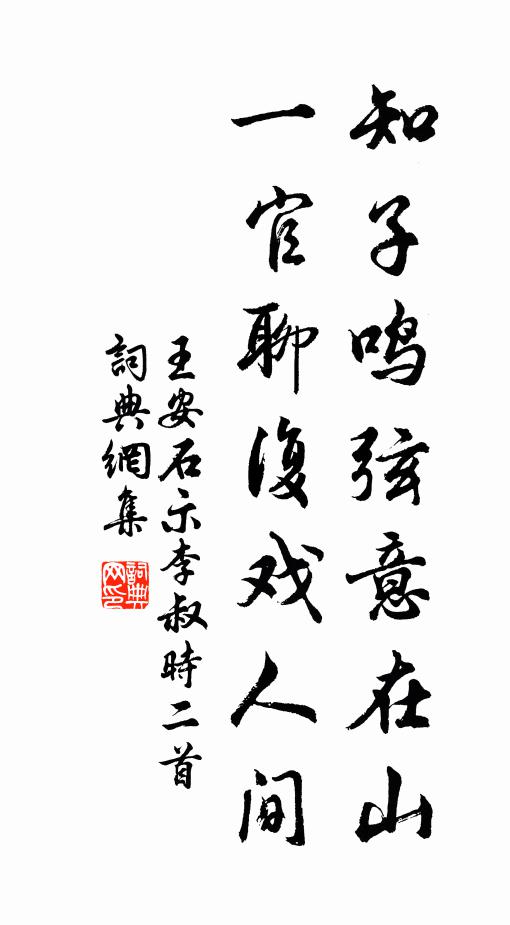 知子鸣弦意在山
一官聊復戏人间
王安石示李叔時二首
詞典網集
詞典网印